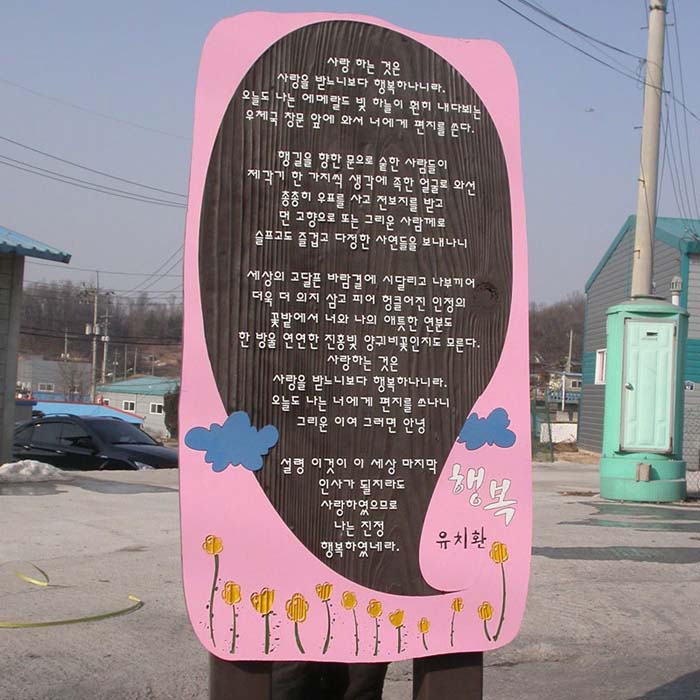 사랑 하는 것은
사랑을 받느니보다 행복하나니라.
오늘도 나는 에메랄드 빛 하늘이 훤히 내다뵈는
우체국 창문 앞에 와서 너에게 편지를 쓴다.
행길을 향한 문으로 숱한 사람들이
제각기 한 가지씩 생각에 족한 얼굴로 와선
총총히 우표를 사고 전보지를 받고
먼 고향으로 또는 그리운 사람께로
슬프고도 즐겁고 다정한 사연들을 보내나니
세상의 고달픈 바람결에 시달리고 나부끼어
더욱 더 의지 삼고 피어 헝클어진 인정의
꽃밭에서 너와 나의 애틋한 연분도
한 방울 연연한 진홍빛 양귀비꽃인지도 모른다.
사랑하는 것은
사랑을 받느니보다 행복하나니라.
오늘도 나는 너에게 편지를 쓰나니
그리운 이여 그러면 안녕
설령 이것이 이 세상 마지막
인사가 될지라도
사랑하였으므로
나는 진정
행복하였네라.
행복
유치환